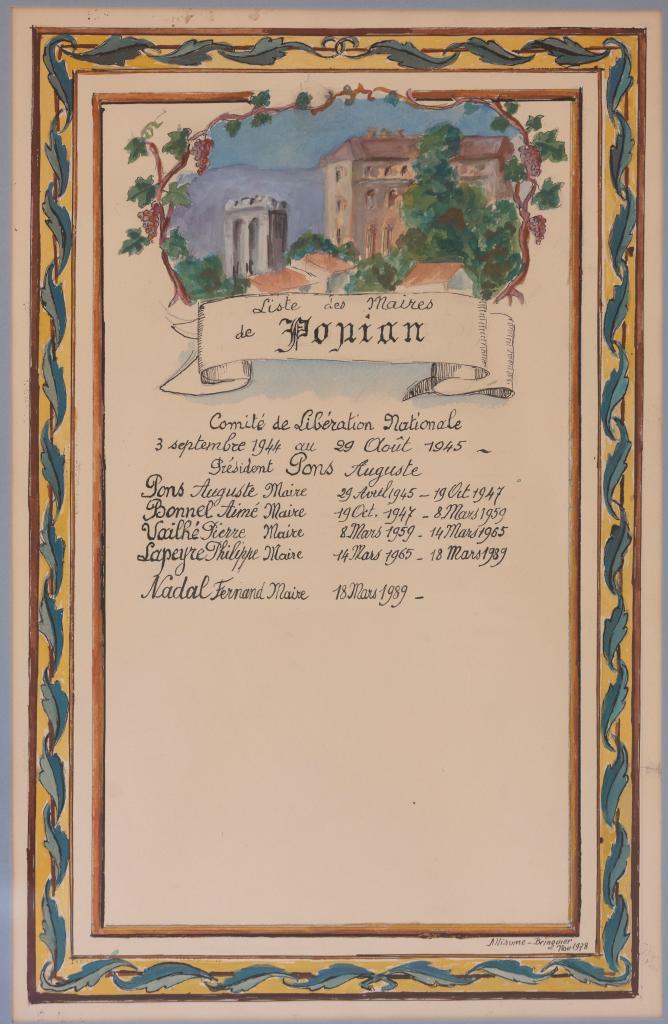 Liste des Maires
de Popian
Comité de Libération Nationale
3 septembre 1944 au 29 Août 1945 -
Président Pons Auguste
Pons Auguste Maire 29 Avril 1945 - 19 Oct 1947
Bonnel Aimé Maire 19 Oct. 1947 - 8 Mars 1959
Vailhé Pierre Maire 8 Mars 1959 - 14 Mars 1965
Lapeyre Philippe Maire 14 Mars 1965 - 18 Mars 1989
Nadal Fernand Maire 18 Mars 1989 -
Bringuier
Nov 1978